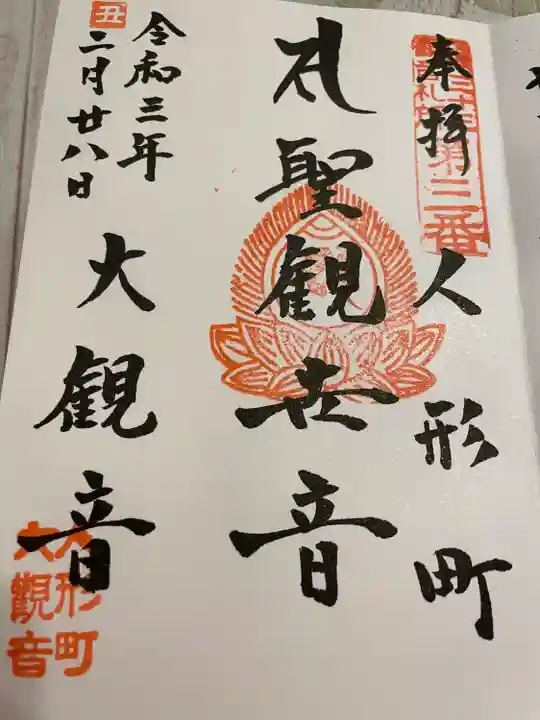 奉拝
第三番
人形町
聖観世音
令和三年
二月廿八日
丑
大観音
人形町
大觀音